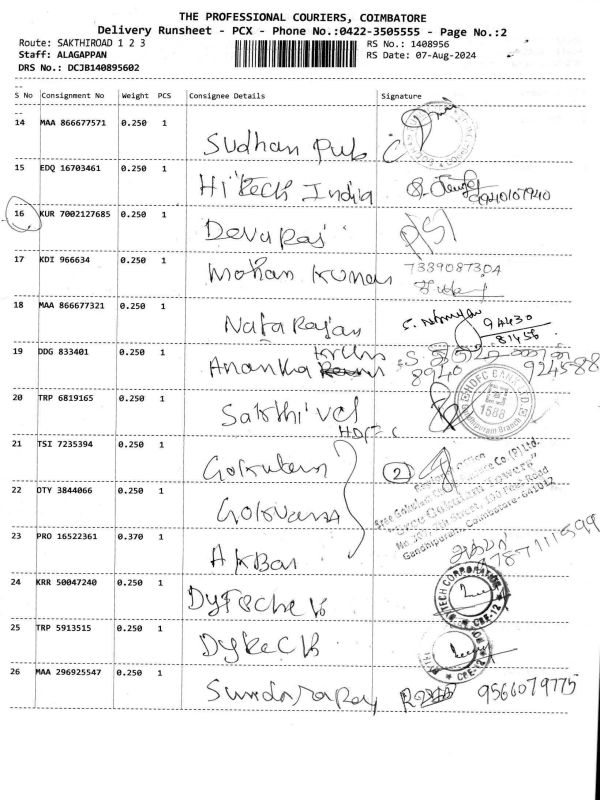 THE PROFESSIONAL COURIERS, COIMBATORE
Delivery Runsheet - PCX - Phone No.:0422-3505555 - Page No.:2
Route: SAKTHIROAD 1 2 3 RS No.: 1408956
Staff: ALAGAPPAN RS Date: 07-Aug-2024
DRS No.: DCJB140895602
S No Consignment No Weight PCS Consignee Details Signature
14 MAA 866677571 0.250 1 Sudhan Pub
15 EDQ 16703461 0.250 1 Hitech India 9940107940
16 KUR 7002127685 0.250 1 Devaraj
17 KDI 966634 0.250 1 Mohan Kumar 7339087304
18 MAA 866677321 0.250 1 Natarajan 94430
81456
19 DDG 833401 0.250 1 Anantha 8940 924588
20 TRP 6819165 0.250 1 Sakthivel
HDFC
HDFC BANK LTD.
1588
21 TSI 7235394 0.250 1 Gokulam 2
22 OTY 3844066 0.250 1
Sree Gokulam Chit & Finance Co.(P) Ltd.
"Sree Gokulam Towers"
Gandhipuram, Coimbatore-641012
23 PRO 16522361 0.370 1 AKBar 787111599
24 KRR 50047240 0.250 1
HITECH CORPORATION
CBE-12
25 TRP 5913515 0.250 1
CBE-12
26 MAA 296925547 0.250 1 Sundararaj 9566079775